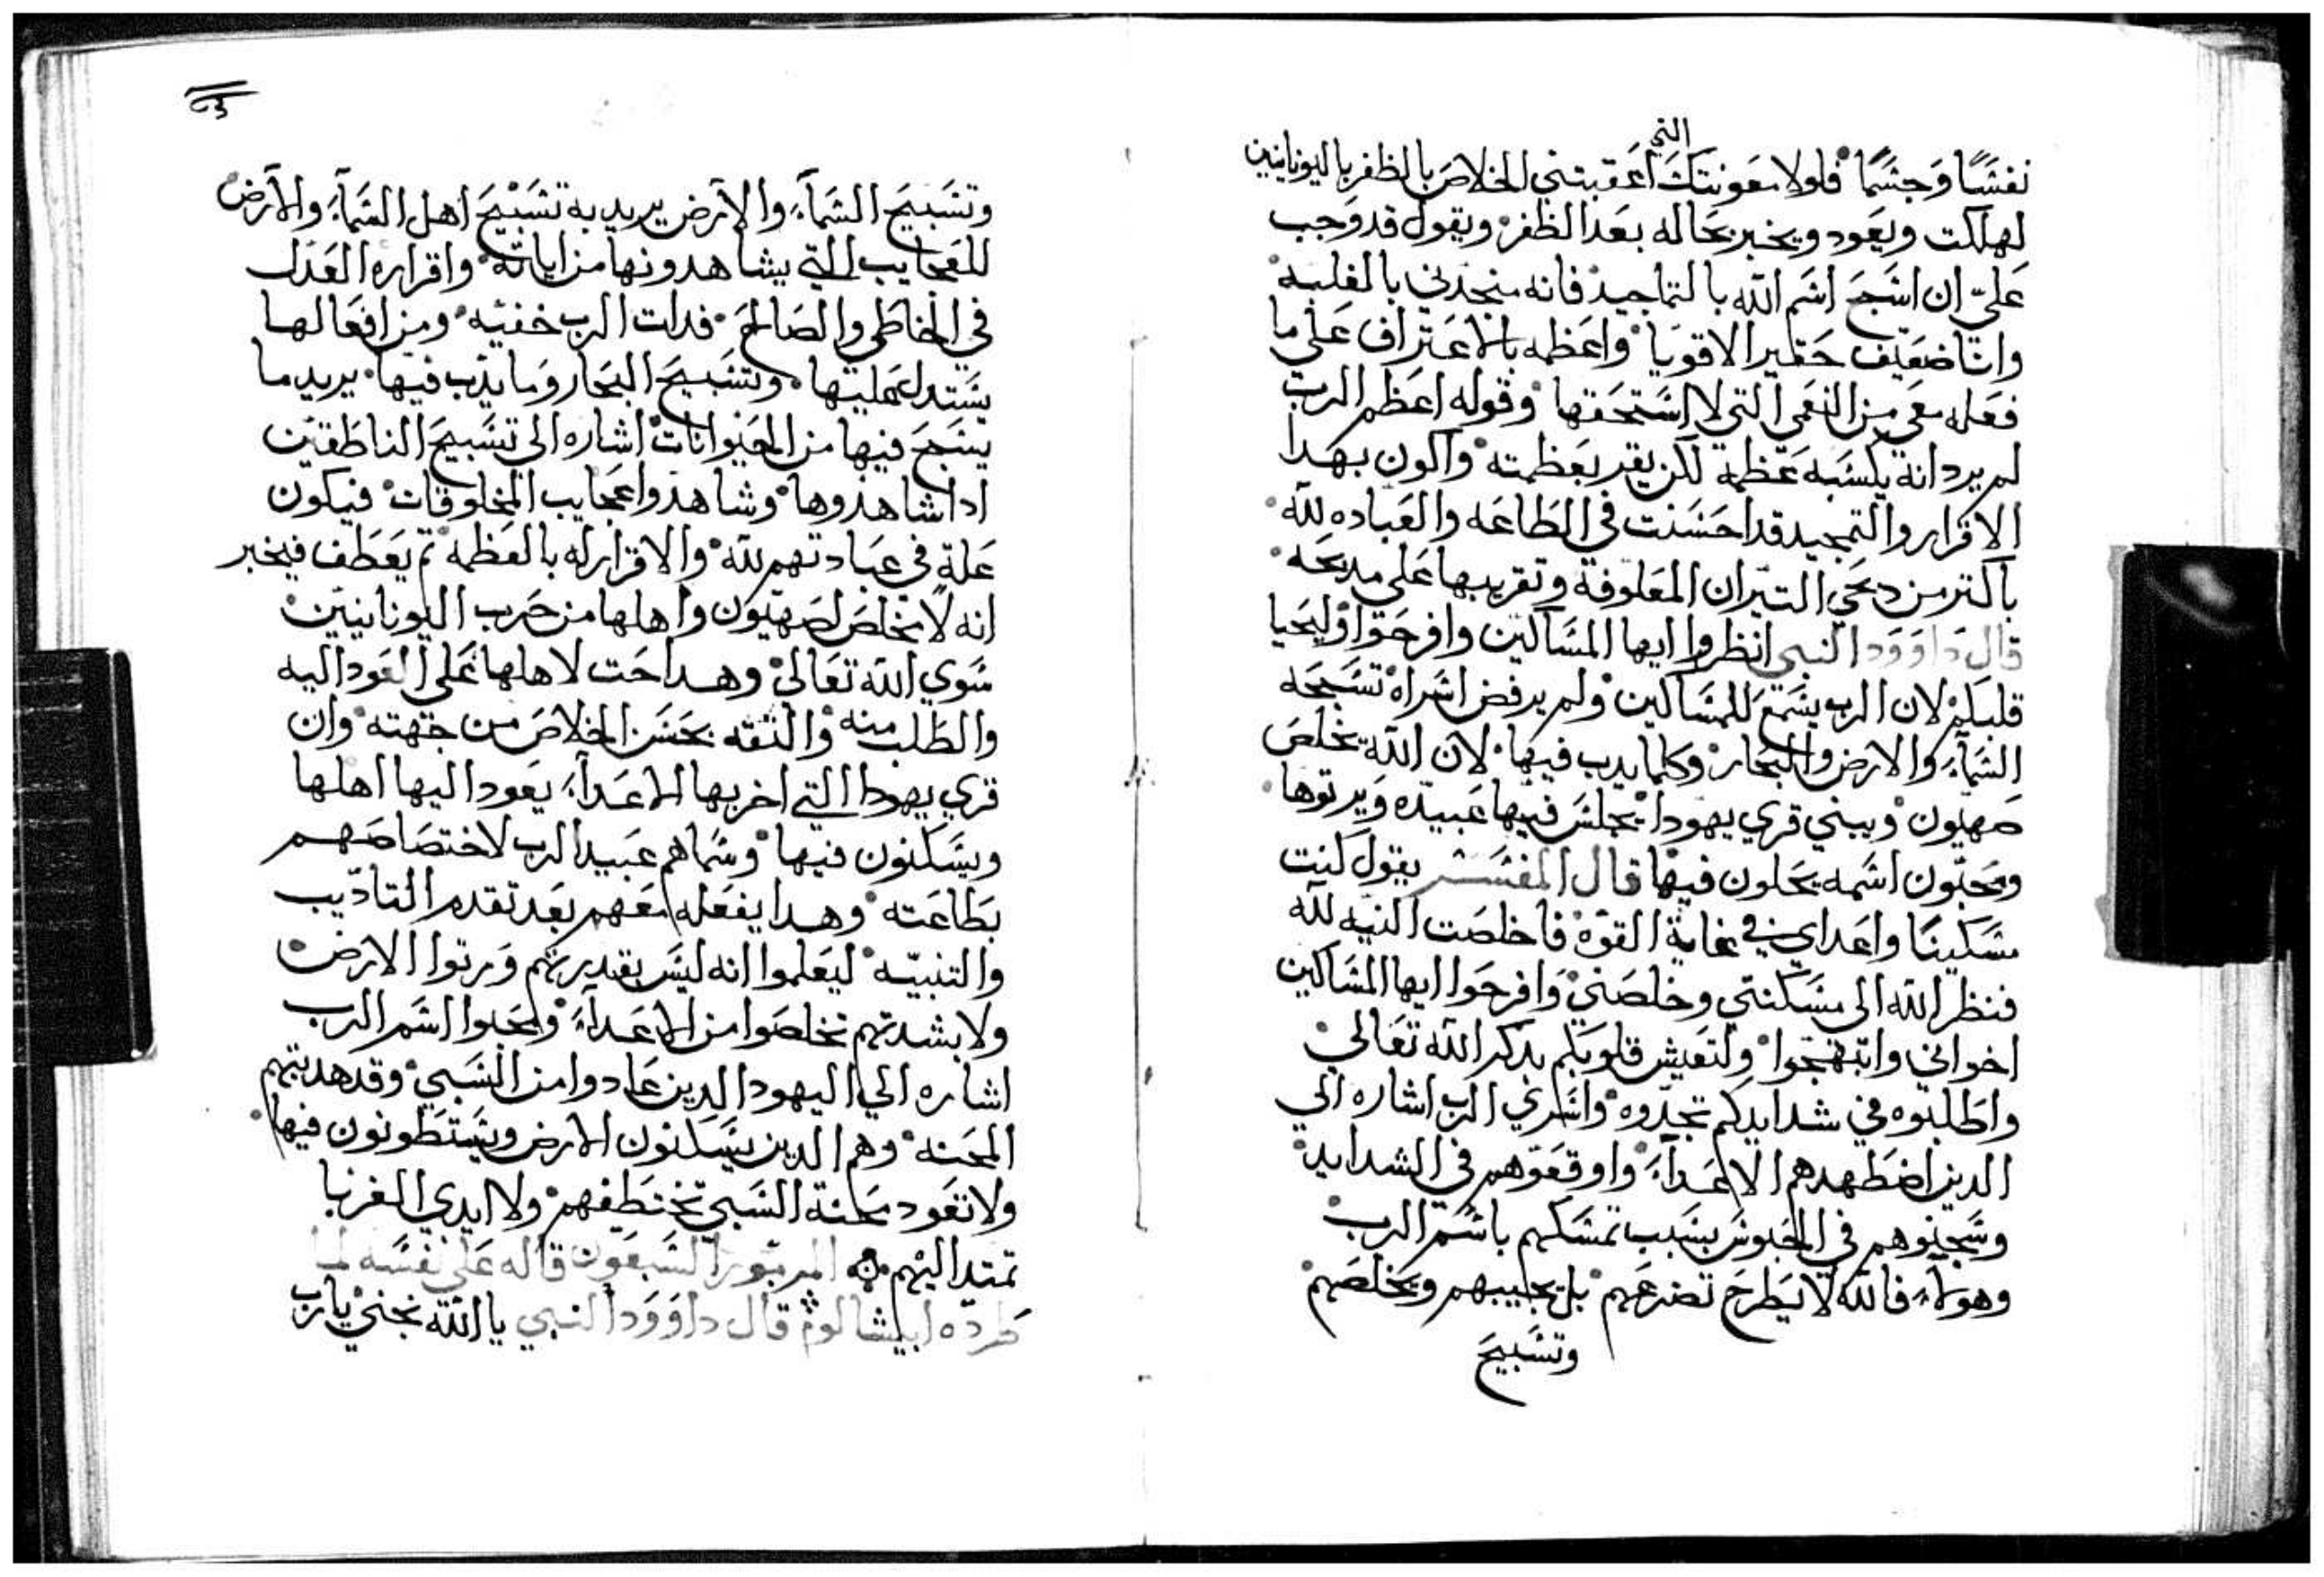 التي
نفسًا وجسمًا فلولا معونتك اعقبتني الخلاص بالظفر باليونانيين
لهلكت ويعود ويخبر بحاله بعد الظفر ويقول قد وجب
عليّ ان اسبح اسم الله بالتماجيد فانه منجدني بالغلبه
وانا ضعيف حقير الاقويا واعظمه بالاعتراف على ما
فعله معي من النعم التي لا استحقها وقوله اعظم الرب
لم يرد انه يكسبه عظمة لكن يقر بعظمته واكون بهدا
الاقرار والتمجيد قد احسنت في الطاعه والعباده لله
باكتر من دبحي التيران المعلوفة وتقريبها على مدبحه
قال داوود النبي انظروا ايها المساكين وافرحوا وليحيا
قلبكم لان الرب يسمع للمساكين ولم يرفض اسراه تسبحه
السمآء والارض والبحار وكلما يدب فيها لان الله يخلص
صهيون ويبني قري يهودا يجلس فيها عبيده ويرتوها
ومحبّون اسمه يحلون فيها قال المفسر يقول كنت
مسكينًا واعداي في غاية القوة فاخلصت النيه لله
فنظر الله الى مسكنتي وخلصني وافرحوا ايها المساكين
اخواني وابتهجوا ولتعيش قلوبكم بدكر الله تعالي
واطلبوه في شدايدكم تجدوه واسري الرب اشاره الي
الدين اضطهدهم الاعدآء واوقعوهم في الشدايد
وسجنوهم في الحبوس بسبب تمسكهم باسم الرب
وهولآء فالله لا يطرح تضرعهم بل يجيبهم ويخلصهم
وتسبيح
وتسبيح السمآء والارض يريد به تسبيح اهل السمآء والارض
للعجايب التي يشاهدونها من اياته واقراره العدل
في الخاطي والصالح فدات الرب خفيه ومن افعالها
يستدل عليها وتسبيح البحار وما يدب فيها يريد ما
يسبح فيها من الحيوانات اشاره الي تسبيح الناطقين
ادا شاهدوها وشاهدوا عجايب المخلوقات فيكون
علة في عبادتهم لله والاقرار له بالعظمه تم يعطف فيخبر
انه لا مخلص لصهيون واهلها من حرب اليونانيين
سوي الله تعالي وهدا حت لاهلها على العود اليه
والطلب منه والتقه بحسن الخلاص من جهته وان
قري يهودا التي اخربها الاعدآء يعود اليها اهلها
ويسكنون فيها وسماهم عبيد الرب لاختصاصهم
بطاعته وهدا يفعله معهم بعد تقدم التاديب
والتنبيه ليعلموا انه ليس بقدرتهم ورتوا الارض
ولا بشدتهم تخلصوا من الاعدآء ومحبوا اسم الرب
اشاره الي اليهود الدين عادوا من السبي وقد هدبتهم
المحنه وهم الدين يسكنون الارض ويستوطنون فيها
ولا تعود محنة السبي تختطفهم ولا ايدي الغربا
تمتد اليهم المزمور السبعون قاله على نفسه لما
طرده ابيشالوم قال داوود النبي يا الله نجني يارب